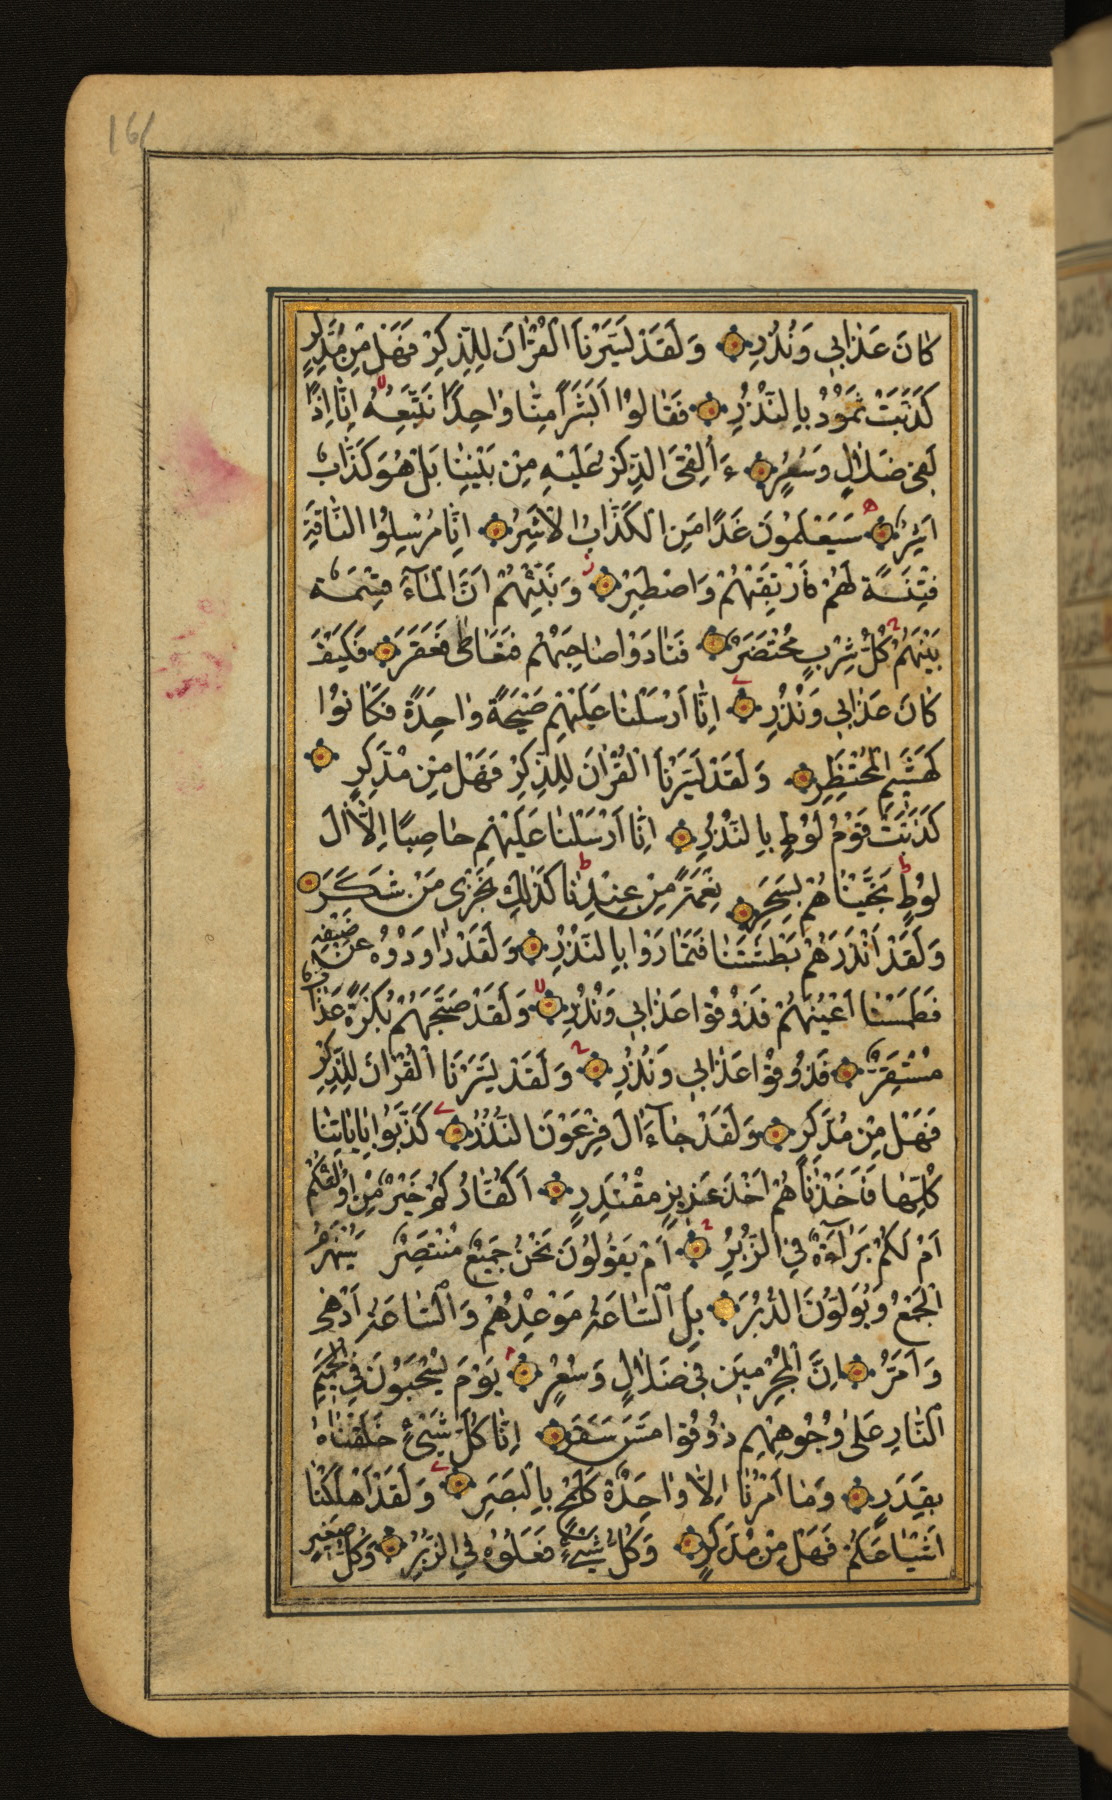 161
كَانَ عَذَابِي وَنُذُرِ وَلَقَدْ يَسَّرْنَا الْقُرْاٰنَ لِلذِّكْرِ فَهَلْ مِنْ مُدَّكِرٍ
كَذَّبَتْ ثَمُودُ بِالنُّذُرِ فَقَالُوا اَبَشَرًا مِنَّا وَاحِدًا نَتَّبِعُهُ اِنَّا اِذًا
لَفِي ضَلَالٍ وَسُعُرٍ ءَاُلْقِيَ الذِّكْرُ عَلَيْهِ مِنْ بَيْنِنَا بَلْ هُوَ كَذَّابٌ
اَشِرٌ سَيَعْلَمُونَ غَدًا مَنِ الْكَذَّابُ الْاَشِرُ اِنَّا مُرْسِلُوا النَّاقَةِ
فِتْنَةً لَهُمْ فَارْتَقِبْهُمْ وَاصْطَبِرْ وَنَبِّئْهُمْ اَنَّ الْمَاءَ قِسْمَةٌ
بَيْنَهُمْ كُلُّ شِرْبٍ مُحْتَضَرٌ فَنَادَوْا صَاحِبَهُمْ فَتَعَاطٰى فَعَقَرَ فَكَيْفَ
كَانَ عَذَابِي وَنُذُرِ اِنَّا اَرْسَلْنَا عَلَيْهِمْ صَيْحَةً وَاحِدَةً فَكَانُوا
كَهَشِيمِ الْمُحْتَظِرِ وَلَقَدْ يَسَّرْنَا الْقُرْاٰنَ لِلذِّكْرِ فَهَلْ مِنْ مُدَّكِرٍ
كَذَّبَتْ قَوْمُ لُوطٍ بِالنُّذُرِ اِنَّا اَرْسَلْنَا عَلَيْهِمْ حَاصِبًا اِلَّا اٰلَ
لُوطٍ نَجَّيْنَاهُمْ بِسَحَرٍ نِعْمَةً مِنْ عِنْدِنَا كَذٰلِكَ نَجْزِي مَنْ شَكَرَ
وَلَقَدْ اَنْذَرَهُمْ بَطْشَتَنَا فَتَمَارَوْا بِالنُّذُرِ وَلَقَدْ رَاوَدُوهُ عَنْ ضَيْفِهِ
فَطَمَسْنَا اَعْيُنَهُمْ فَذُوقُوا عَذَابِي وَنُذُرِ وَلَقَدْ صَبَّحَهُمْ بُكْرَةً عَذَابٌ
مُسْتَقِرٌّ فَذُوقُوا عَذَابِي وَنُذُرِ وَلَقَدْ يَسَّرْنَا الْقُرْاٰنَ لِلذِّكْرِ
فَهَلْ مِنْ مُدَّكِرٍ وَلَقَدْ جَاءَ اٰلَ فِرْعَوْنَ النُّذُرُ كَذَّبُوا بِاٰيَاتِنَا
كُلِّهَا فَاَخَذْنَاهُمْ اَخْذَ عَزِيزٍ مُقْتَدِرٍ اَكُفَّارُكُمْ خَيْرٌ مِنْ اُولٰئِكُمْ
اَمْ لَكُمْ بَرَاءَةٌ فِي الزُّبُرِ اَمْ يَقُولُونَ نَحْنُ جَمِيعٌ مُنْتَصِرٌ سَيُهْزَمُ
الْجَمْعُ وَيُوَلُّونَ الدُّبُرَ بَلِ السَّاعَةُ مَوْعِدُهُمْ وَالسَّاعَةُ اَدْهٰى
وَاَمَرُّ اِنَّ الْمُجْرِمِينَ فِي ضَلَالٍ وَسُعُرٍ يَوْمَ يُسْحَبُونَ فِي
النَّارِ عَلٰى وُجُوهِهِمْ ذُوقُوا مَسَّ سَقَرَ اِنَّا كُلَّ شَيْءٍ خَلَقْنَاهُ
بِقَدَرٍ وَمَا اَمْرُنَا اِلَّا وَاحِدَةٌ كَلَمْحٍ بِالْبَصَرِ وَلَقَدْ اَهْلَكْنَا
اَشْيَاعَكُمْ فَهَلْ مِنْ مُدَّكِرٍ وَكُلُّ شَيْءٍ فَعَلُوهُ فِي الزُّبُرِ وَكُلُّ صَغِيرٍ